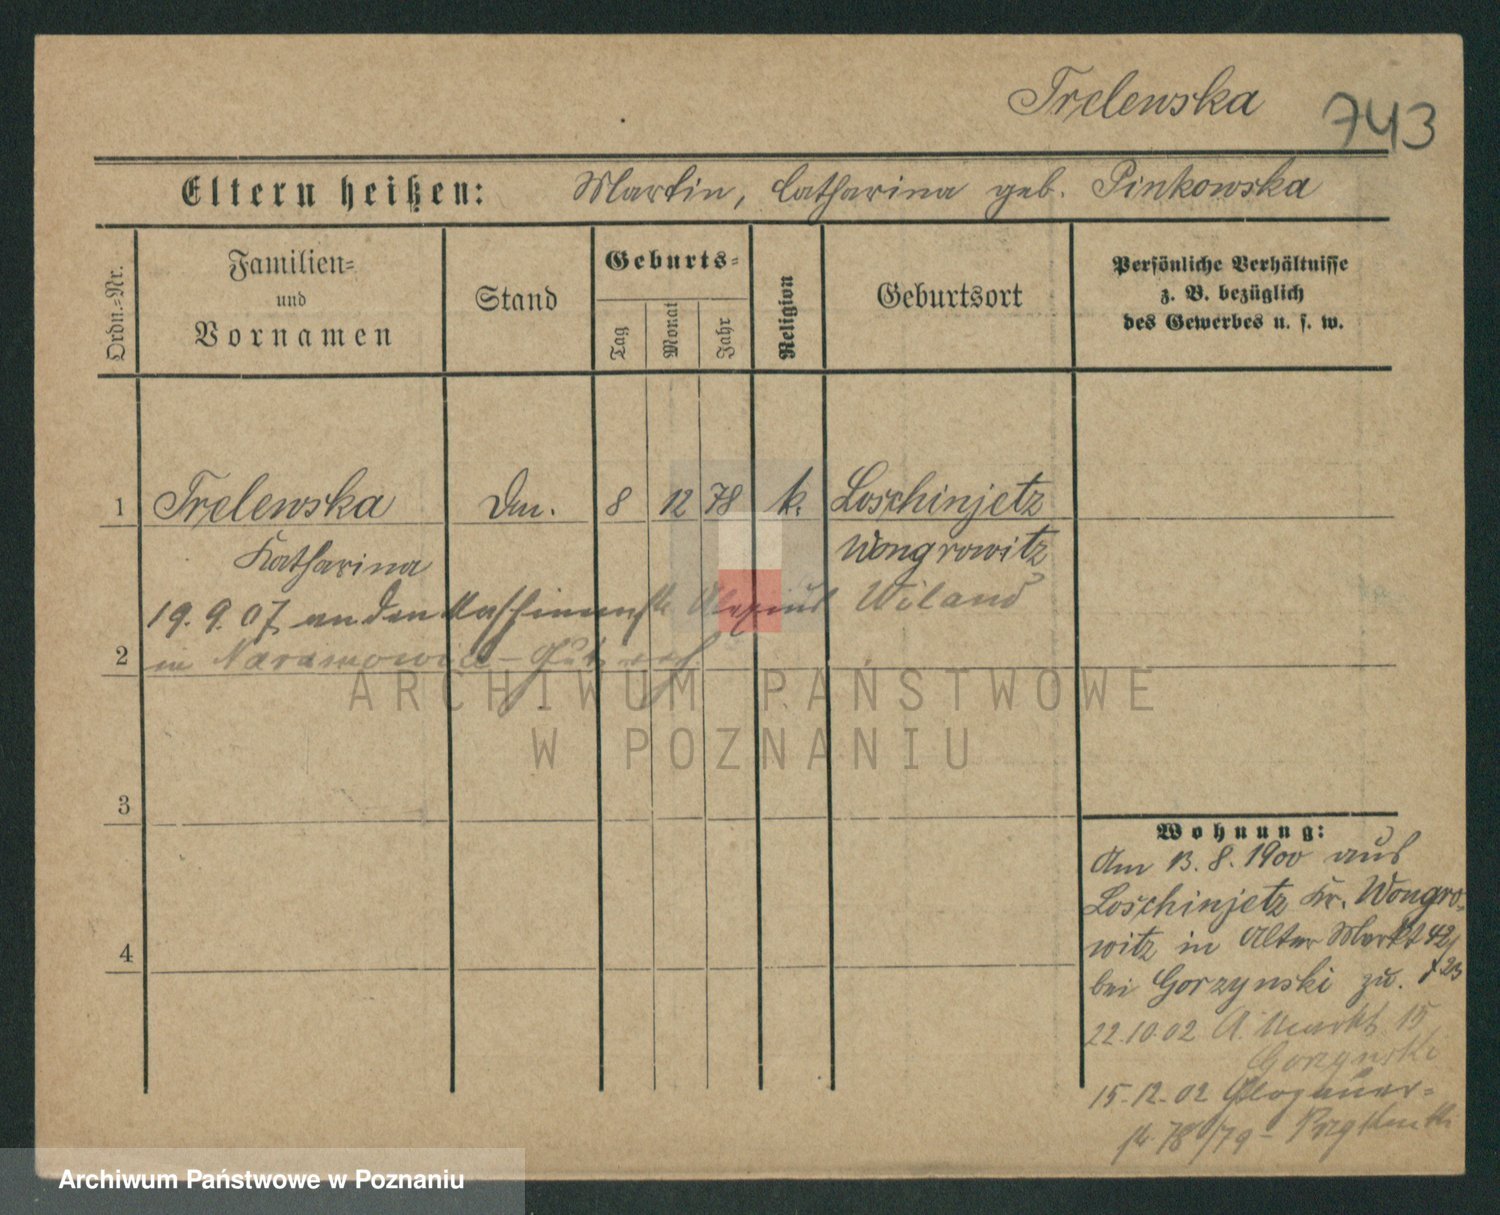 Trelewska 743
Eltern heißen: Martin, Catharina geb. Pinkowska
Ordn.-Nr.
Familien-
und
Vornamen
Stand
Geburts-
Tag
Monat
Jahr
Religion
Geburtsort
Persönliche Verhältnisse
z. B. bezüglich
des Gewerbes u. s. w.
1 Trelewska 8 12 78 k. Loschinjetz
Katharina Wongrowitz
19. 9. 07 an den Wiland
2 in Naramowice -
3
4
Wohnung:
Am 13. 8. 1900 aus
Loschinjetz Kr. Wongro-
witz in Alter Markt 42
bei Gorzynski zu.
22.10.02 A. Markt 15
Gorzynski
15.12.02 Glogauer-
str 78/79 -
ARCHIWUM PAŃSTWOWE
W POZNANIU
Archiwum Państwowe w Poznaniu